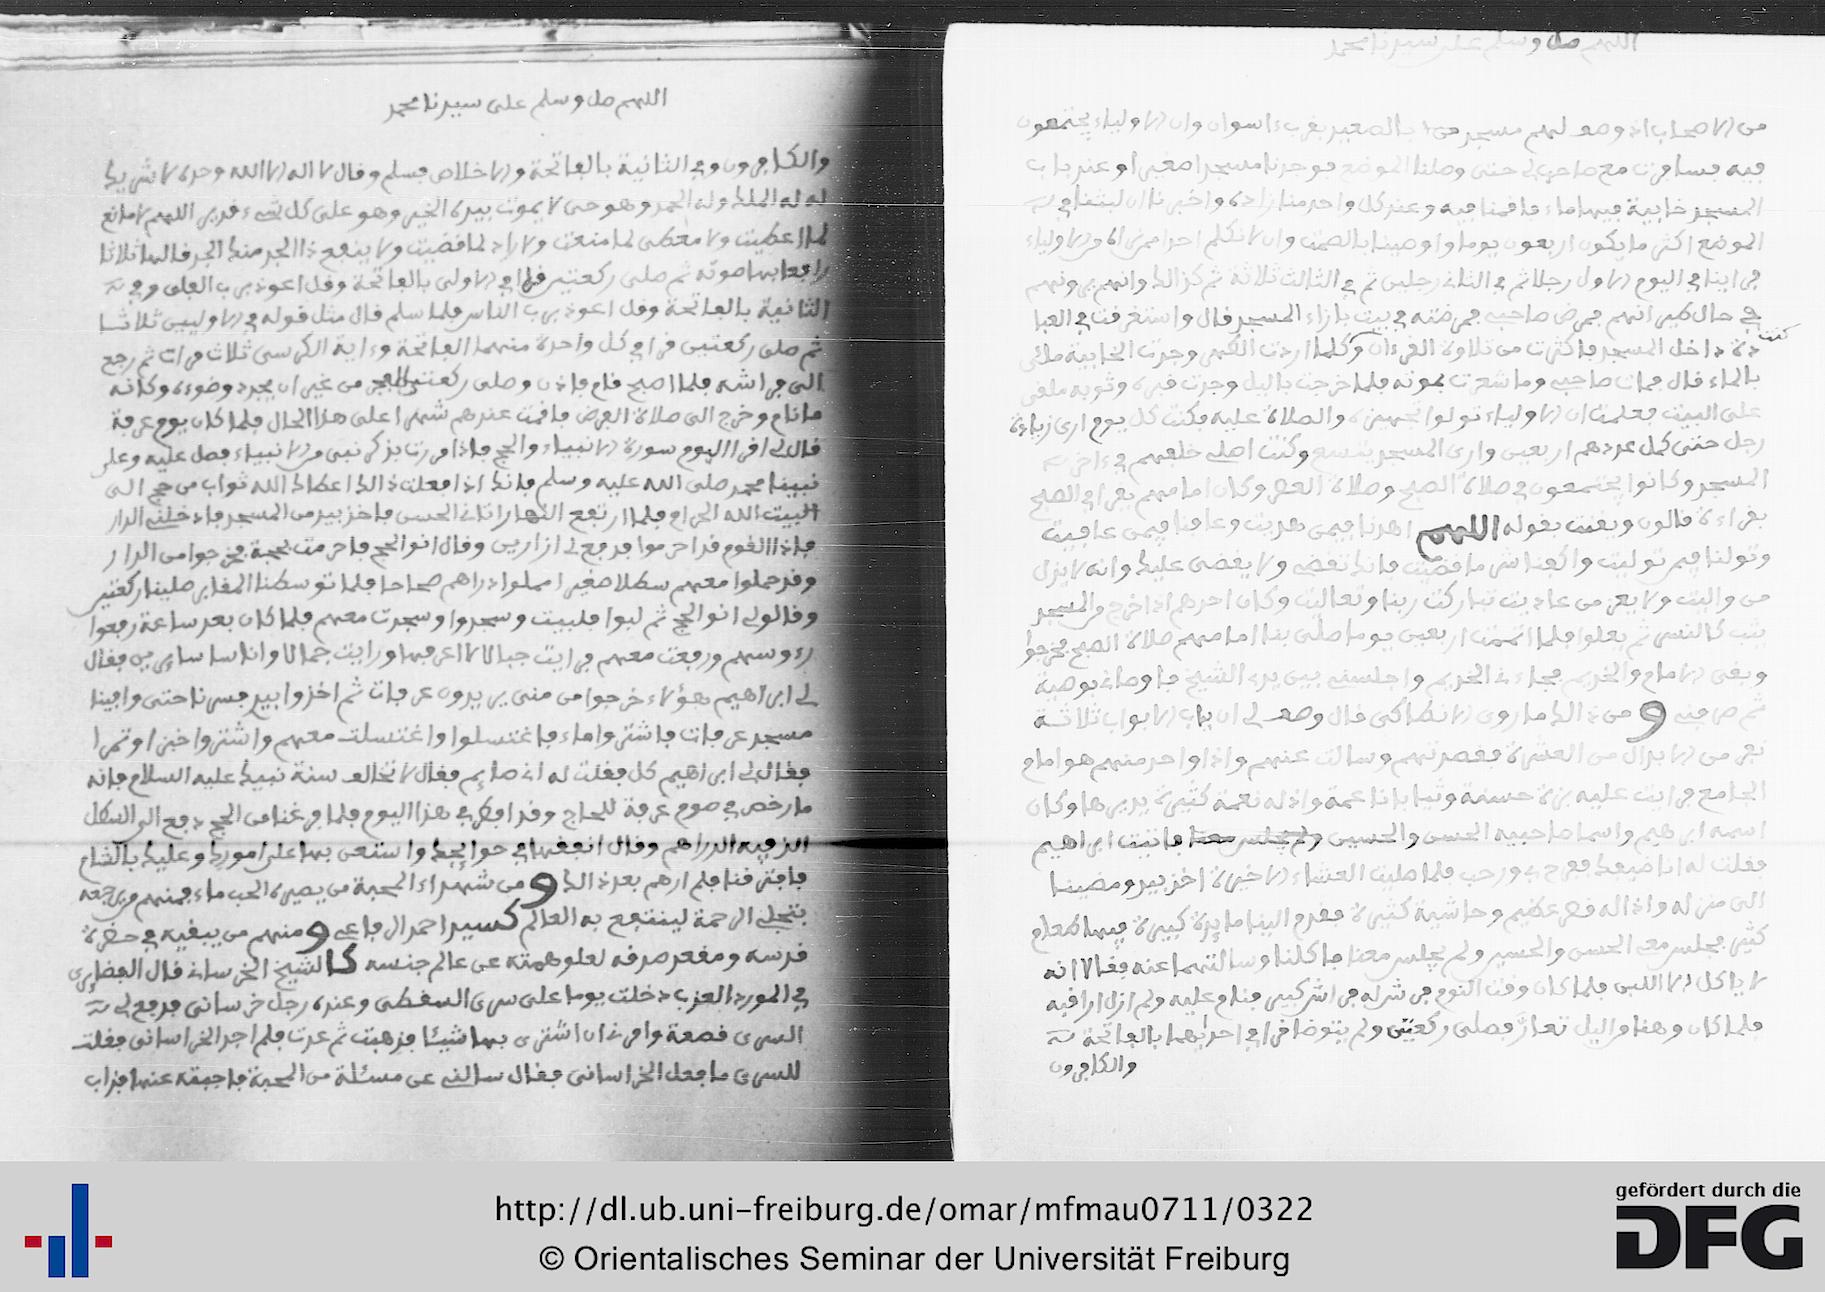 اللهم صل وسلم على سيدنا محمد
من الاصحاب اذ وصف لهم مسجد من بالصعيد بقرب اسوان وان الاولياء يجتمعون
فيه فسافرت مع صاحب لي حتى وصلنا الموضع فوجدنا مسجدا صغيرا وعند باب
المسجد خابية فيها ماء فاقمنا فيه وعند كل واحد منا زاده واخبرنا ان لبثنا في
الموضع اكثر ما يكون اربعون يوما واوصينا بالصمت وان لا نكلم احدا من الاولياء
فراينا في اليوم الاول رجلا ثم في الثاني رجلين ثم في الثالث ثلاثة ثم كذلك وانهم يرونهم
في حال فمرض صاحبي فمرضته في بيت بازاء المسجد قال واستغرقت في العبا
كنت
دة داخل المسجد فاكثرت من تلاوة القرءان وكلما اردت الطهر وجدت الخابية ملئى
بالماء قال فمات صاحبي وما شعرت بموته فلما خرجت باليل وجدت قبره وثوبه ملقى
على البيت فعلمت ان الاولياء تولوا تجهيزه والصلاة عليه فكنت كل يوم ارى زيادة
رجل حتى كمل عددهم اربعين وارى المسجد يتسع وكنت اصلي خلفهم في ءاخر
المسجد وكانوا يجتمعون في صلاة الصبح وصلاة العصر وكان امامهم يقرا في الصبح
بقراءة قالون ويقنت بقوله اللهم اهدنا فيمن هديت وعافنا فيمن عافيت
وتولنا فيمن توليت واكفنا شر ما قضيت فانك تقضي ولا يقضى عليك وانه لا يذل
من واليت ولا يعز من عاديت تباركت ربنا وتعاليت وكان احدهم اذا خرج من المسجد
ثم يعلوا فلما اتممت اربعين يوما صلى بنا امامهم صلاة الصبح فخرجوا
وبقي الامام والخديم فجاءني الخديم واجلسني بين يدي الشيخ فاوصاني بوصية
ثم صرفني و من ذلك ما روى الانطاكي قال وصف لي ان بباب الابواب ثلاثة
نفر من الابدال من العشرة فقصدتهم وسالت عنهم واذا واحد منهم هو امام
الجامع فرايت عليه بزة حسنة وثيابا ناعمة واذ له نعمة كثيرة يديرها وكان
اسمه ابرهيم واسما صاحبيه الحسن والحسين ولم يجلس معنا فاتيت ابراهيم
فقلت له انا ضيفك ففرح بي ورحب فلما صليت العشاء الاخيرة اخذ بيدي ومضينا
الى منزله واذا له قصر عظيم وحاشية كثيرة فقدم الينا مايدة كبيرة فيها طعام
كثير فجلس معي الحسن والحسين ولم يجلس معنا فاكلنا وسالتهما عنه فقالا انه
لا ياكل الا اللبن فلما كان وقت النوم فرشوا له فراشا كبيرا فنام عليه ولم ازل اراقبه
فلما كان وهنا من اليل تعار فصلى ركعتين ولم يتوضا قرا في احديهما بالفاتحة
والكافرون
اللهم صل وسلم على سيدنا محمد
والكافرون وفي الثانية بالفاتحة والاخلاص فسلم وقال لا اله الا الله وحده لا شريك
له له الملك وله الحمد وهو حي لا يموت بيده الخير وهو على كل شيء قدير اللهم لا مانع
لما اعطيت ولا معطي لما منعت ولا راد لما قضيت ولا ينفع ذا الجد منك الجد قالها ثلاثا
رافعا بها صوته ثم صلى ركعتين قرا في الاولى بالفاتحة وقل اعوذ برب الفلق وفي
الثانية بالفاتحة وقل اعوذ برب الناس فلما سلم قال مثل قوله في الاوليين ثلاثا
ثم صلى ركعتين قرا في كل واحدة منهما الفاتحة وءاية الكرسي ثلاث مرات ثم رجع
الى فراشه فلما اصبح قام فاذن وصلى ركعتي الفجر من غير ان يجدد وضوءه وكانه
ما نام وخرج الى صلاة الفرض فاقمت عندهم شهرا على هذا الحال فلما كان يوم عرفة
قال لي اقرا اليوم سورة الانبياء والحج فاذا مررت بذكر نبي من الانبياء فصل عليه وعلى
نبينا محمد صلى الله عليه وسلم فانك اذا فعلت ذلك اعطاك الله ثواب من حج الى
البيت الله الحرام فلما ارتفع النهار اتاني الحسن فاخذ بيدي من المسجد فادخلني الدار
فاذا القوم قد احرموا فدفع لي ازارين وقال انو الحج فاحرمت بحجة فخرجوا من الدار
وقد حملوا معهم سطلا صغيرا مملوا دراهم صحاحا فلما توسطنا المقابر صلينا ركعتين
وقالوا لي انو الحج ثم لبوا فلبيت وسجدوا وسجدت معهم فلما كان بعد ساعة رفعوا
رءوسهم ورفعت معهم فرايت جبالا لا اعرفها ورايت جمالا واناسا سايرين فقال
لي ابراهيم هؤلاء خرجوا من منى يريدون عرفات ثم اخذوا بيدي فسرنا حتى وافينا
مسجد عرفات فاشتروا ماء فاغتسلوا واغتسلت معهم واشتروا خبزا وتمرا
فقال لي ابراهيم كل فقلت له اني صايم فقال لا تخالف سنة نبيك عليه السلام فانه
ما رخص في صوم عرفة للحاج وقد افطر في هذا اليوم فلما فرغنا من الحج دفع الي السطل
الذي فيه الدراهم وقال انفقها في حوايجك واستعن بها على امورك وعليك بالشام
فافترقنا فلم ارهم بعد ذلك و من شهداء المحبة من يصيره الحب ماء فمنهم من جمعه
بتجلي الرحمة لينتفع به العالم كسيدا احمد الرفاعي و منهم من يبقيه في حضرة
قدسه ومقعد صدقه لعلو همته عن عالم جنسه كالشيخ الخرساني قال الفضايري
في المورد العذب دخلت يوما على سري السقطي وعنده رجل خرساني فدفع لي
السري قصعة وامرني ان اشتري بها شيئا فذهبت ثم عدت فلم اجد الخراساني فقلت
للسري ما فعل الخراساني فقال سالني عن مسئلة من المحبة فاجبته عنها فذاب
http://dl.ub.uni-freiburg.de/omar/mfmau0711/0322
© Orientalisches Seminar der Universität Freiburg
gefördert durch die
DFG